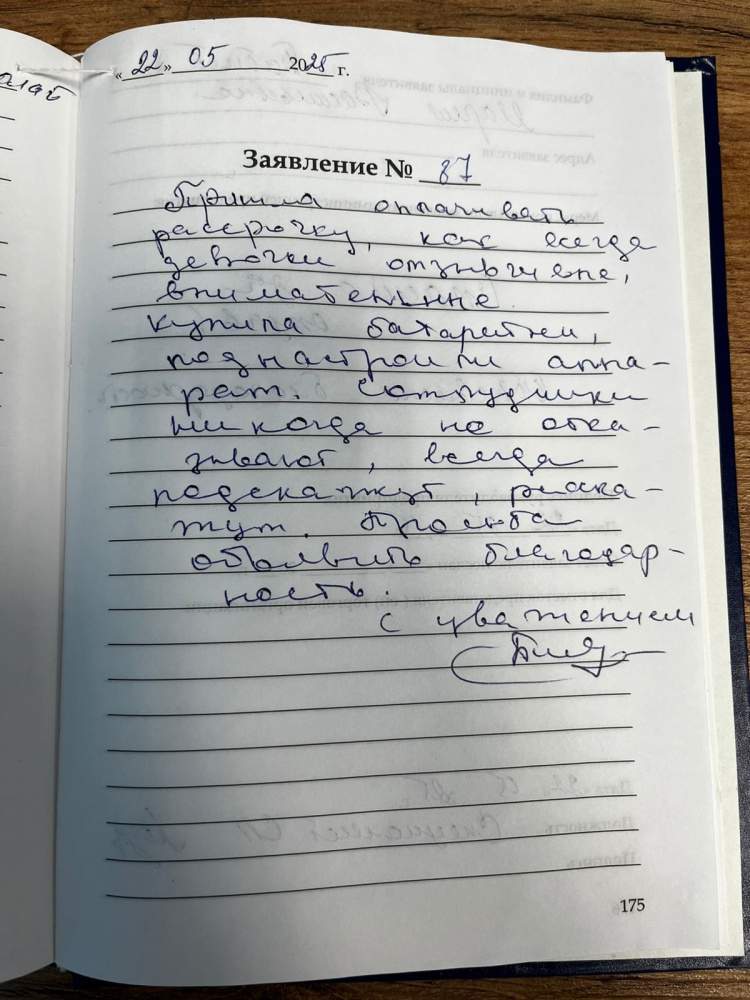 алай
«22» 05 2025 г.
Заявление № 87
Пришла оплачивать
рассрочку, как всегда
девочки отзывчевые,
внимательные.
купила батарейки,
поднастроили аппа-
рат. Сотрудники
никогда не отка-
зывают, всегда
подскажут, расска-
жут. Просьба
объявить благодар-
ность.
с уважением
175